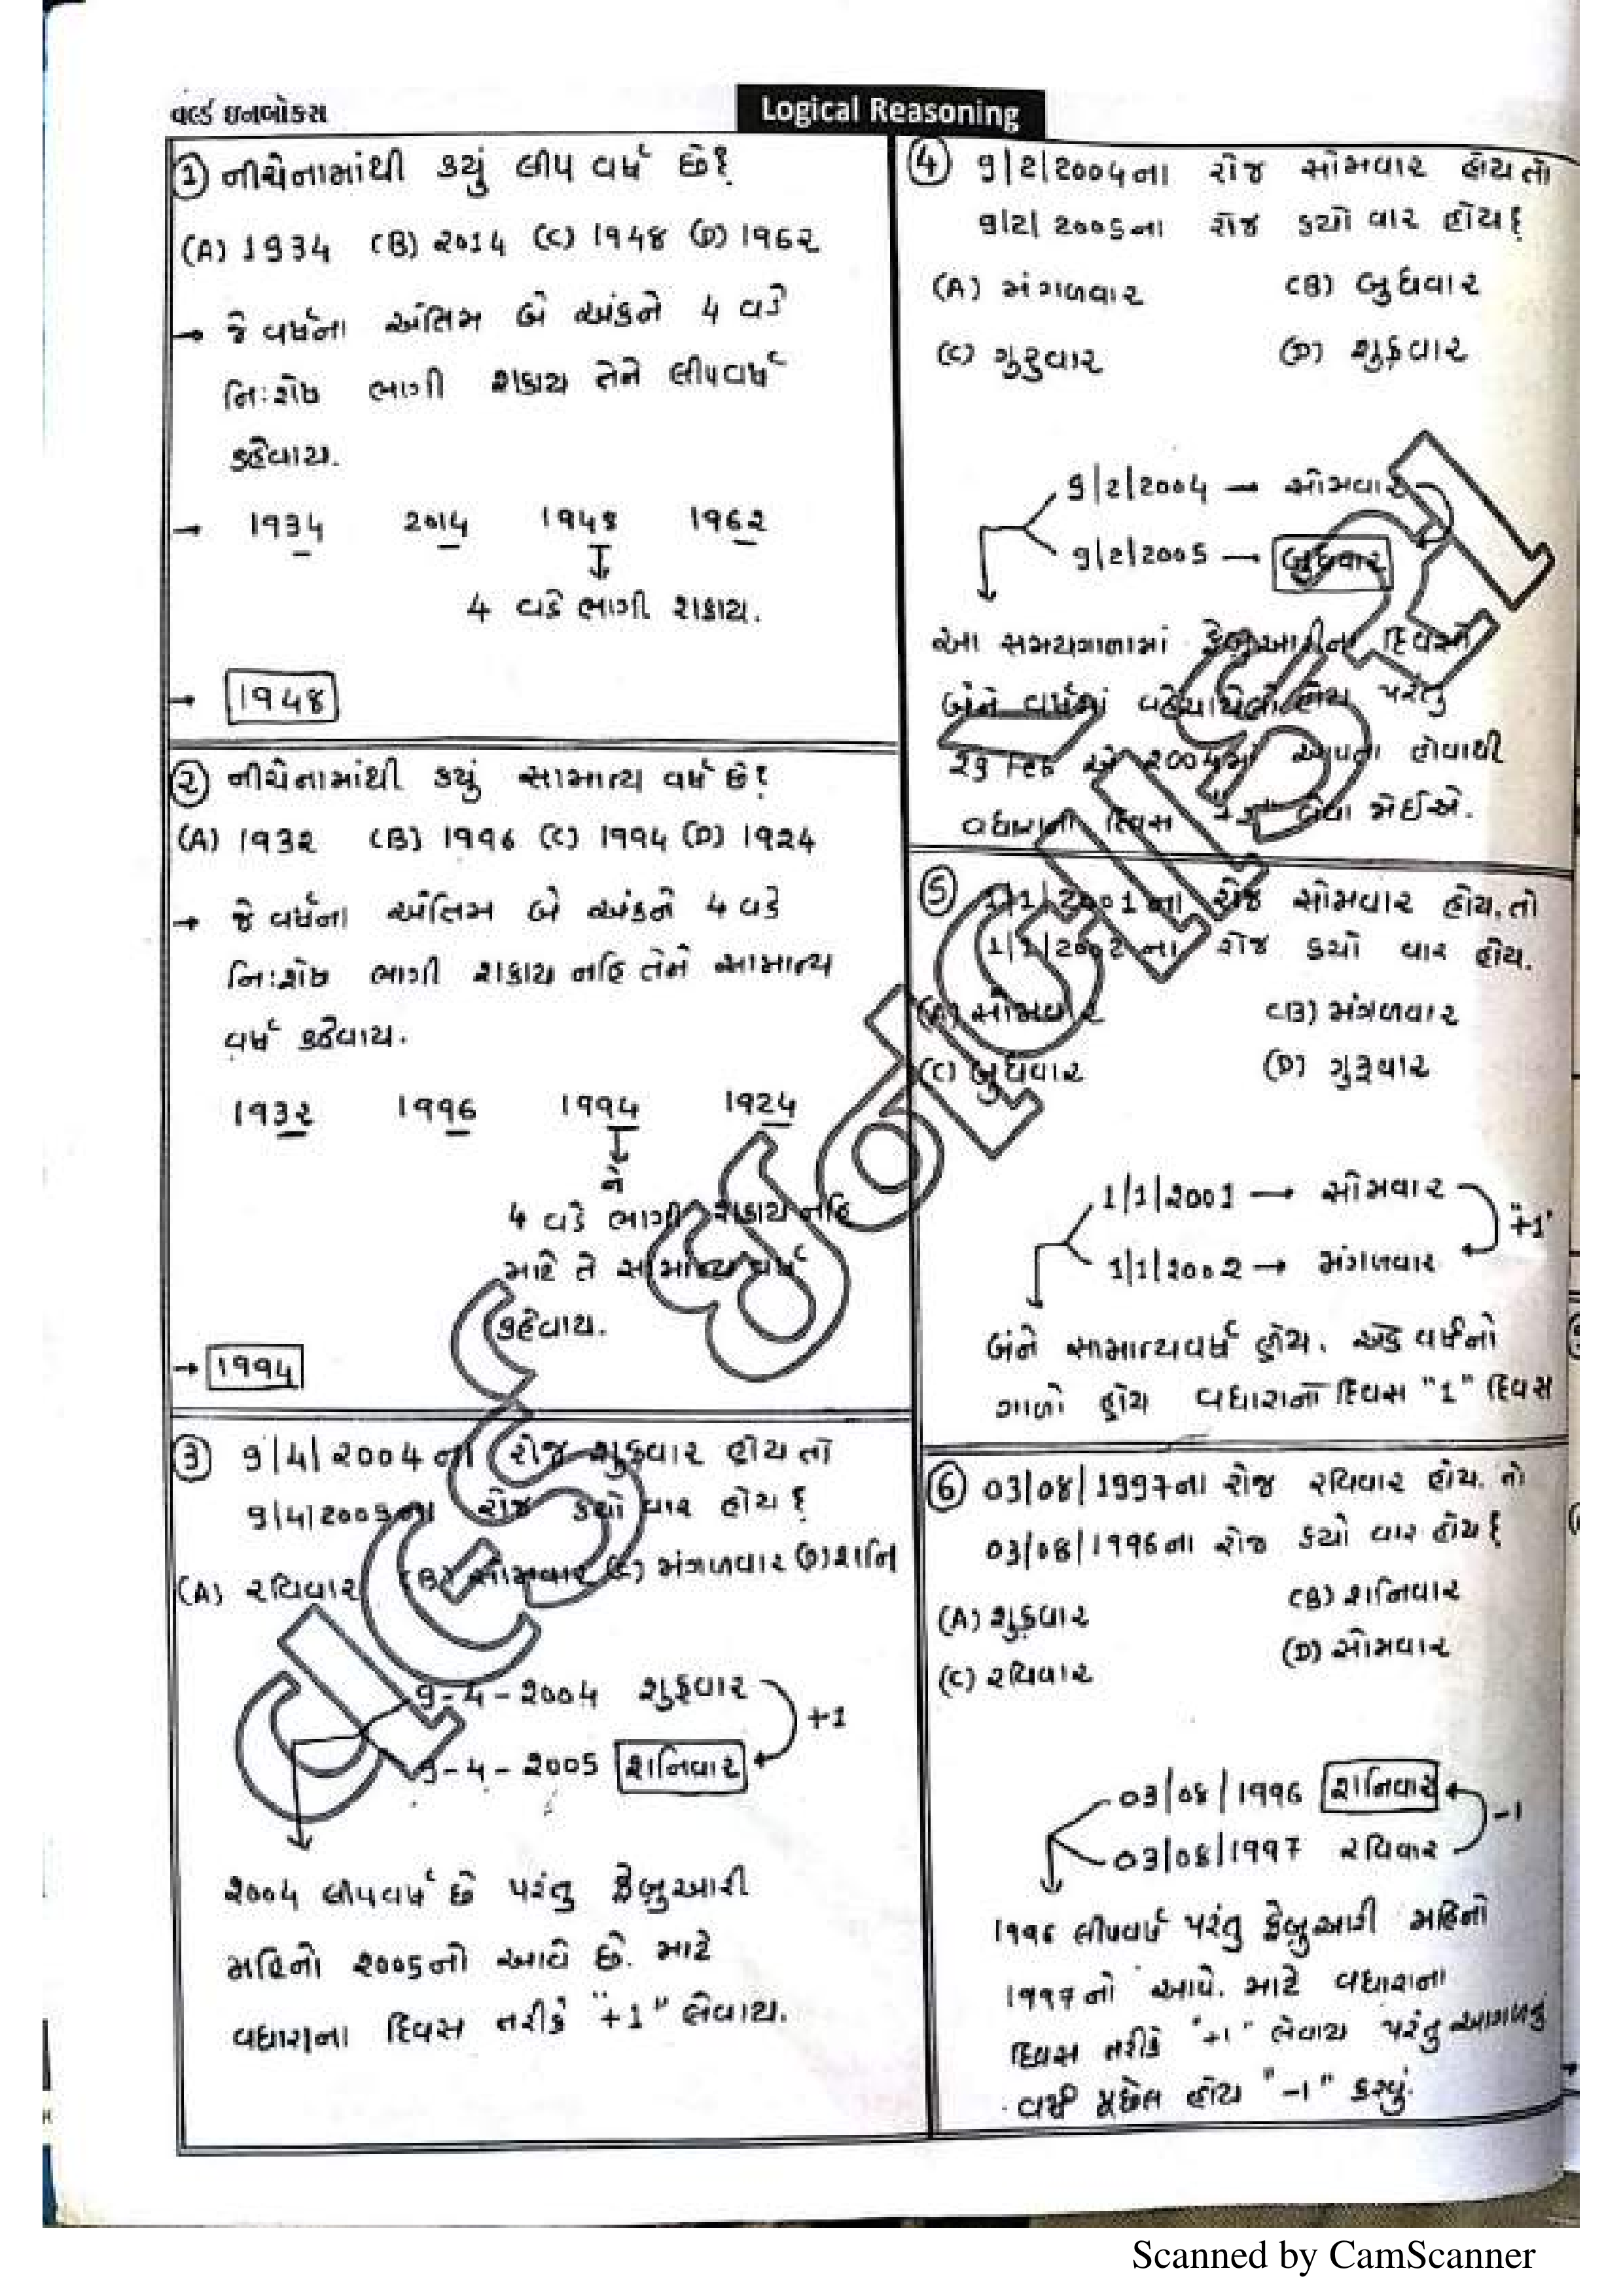 વર્લ્ડ ઇનબોક્સ
Logical Reasoning
① નીચેનામાંથી કયું લીપ વર્ષ છે?
(A) 1934 (B) 2014 (C) 1948 (D) 1962
→ જે વર્ષના અંતિમ બે અંકને 4 વડે
નિઃશેષ ભાગી શકાય તેને લીપવર્ષ
કહેવાય.
→ 1934 2014 1948 1962
4 વડે ભાગી શકાય.
→ 1948
② નીચેનામાંથી કયું સામાન્ય વર્ષ છે?
(A) 1932 (B) 1996 (C) 1994 (D) 1924
→ જે વર્ષના અંતિમ બે અંકને 4 વડે
નિઃશેષ ભાગી શકાય નહિ તેને સામાન્ય
વર્ષ કહેવાય.
1932 1996 1994 1924
4 વડે ભાગી શકાય નહિ
માટે તે સામાન્ય વર્ષ
કહેવાય.
→ 1994
③ 9/4/2004ના રોજ શુક્રવાર હોય તો
9/4/2005ના રોજ કયો વાર હોય?
(A) રવિવાર (B) સોમવાર (C) મંગળવાર (D) શનિ
9-4-2004 શુક્રવાર
+1
9-4-2005 શનિવાર
2004 લીપવર્ષ છે પરંતુ ફેબ્રુઆરી
મહિનો 2005નો આવે છે. માટે
વધારાના દિવસ તરીકે "+1" લેવાય.
④ 9/2/2004ના રોજ સોમવાર હોય તો
9/2/2005ના રોજ કયો વાર હોય?
(A) મંગળવાર (B) બુધવાર
(C) ગુરુવાર (D) શુક્રવાર
9/2/2004 → સોમવાર
9/2/2005 → બુધવાર
આ સમયગાળામાં ફેબ્રુઆરીના દિવસો
બંને વર્ષમાં વહેંચાયેલો હોય પરંતુ
29 Feb એ 2004માં આવતા હોવાથી
વધારાના દિવસ લેવા જોઈએ.
⑤ 1/1/2001ના રોજ સોમવાર હોય, તો
1/1/2002ના રોજ કયો વાર હોય.
(A) સોમવાર (B) મંગળવાર
(C) બુધવાર (D) ગુરૂવાર
1/1/2001 → સોમવાર
"+1"
1/1/2002 → મંગળવાર
બંને સામાન્યવર્ષ હોય. એક વર્ષનો
ગાળો હોય વધારાનો દિવસ "1" દિવસ
⑥ 03/08/1997ના રોજ રવિવાર હોય. તો
03/08/1996ના રોજ કયો વાર હોય?
(A) શુક્રવાર (B) શનિવાર
(C) રવિવાર (D) સોમવાર
03/08/1996 શનિવાર
-1
03/08/1997 રવિવાર
1996 લીપવર્ષ પરંતુ ફેબ્રુઆરી મહિનો
1997નો આવે. માટે વધારાના
દિવસ તરીકે "+1" લેવાય પરંતુ આગળનું
વર્ષ પૂછેલ હોય "-1" કર્યું.
Scanned by CamScanner